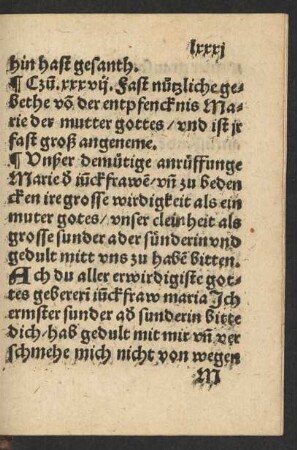 lxxxj
hin hast gesanth.
¶ Czů. xxxvij. Fast nůtzliche ge-
bethe võ der entpfencknis Ma-
rie der mutter gottes / vnd ist jr
fast groß angeneme.
¶ Vnßer demütige anrüffunge
Marie d̕ iũckfrawẽ / vñ zu beden
cken ire grosse wirdigkeit als ein
muter gotes / vnser cleinheit als
grosse sunder ader sünderin vnd
gedult mitt vns zu habẽ bitten.
Ach du aller erwirdigiste got-
tes gebererĩ iũckfraw maria Jch
ermster sunder ad̕ sunderin bitte
dich / hab gedult mit mir vñ ver
schmehe mich nicht von wegen
M